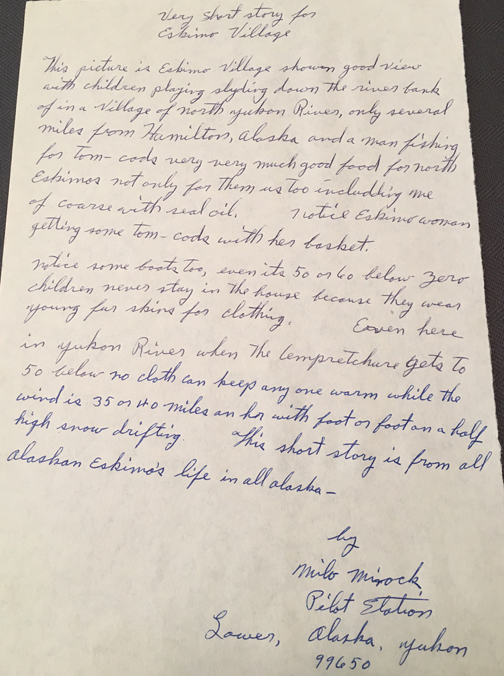 Very short story for
Eskimo Village
This picture is Eskimo Village showen good view
with children playing slyding down the river bank
of in a Village of north yukon River, only several
miles from Hamilton, Alaska and a man fishing
for Tom-cods very very much good food for north
Eskimos not only for them us too includding me
of coarse with seal oil. notice Eskimo woman
getting some tom-cods with her basket.
notice some boats too, even its 50 or 60 below zero
children never stay in the house because they wear
young fur skins for clothing. Eaven here
in yukon River when the tempretchure gets to
50 below no cloth can keep any one warm while the
wind is 35 or 40 miles an hr with foot or foot an a half
high snow drifting. This short story is from all
alaskan Eskimo's life in all alaska-
by
Milo Minock
Pilot Station
Lower, Alaska, yukon
99650